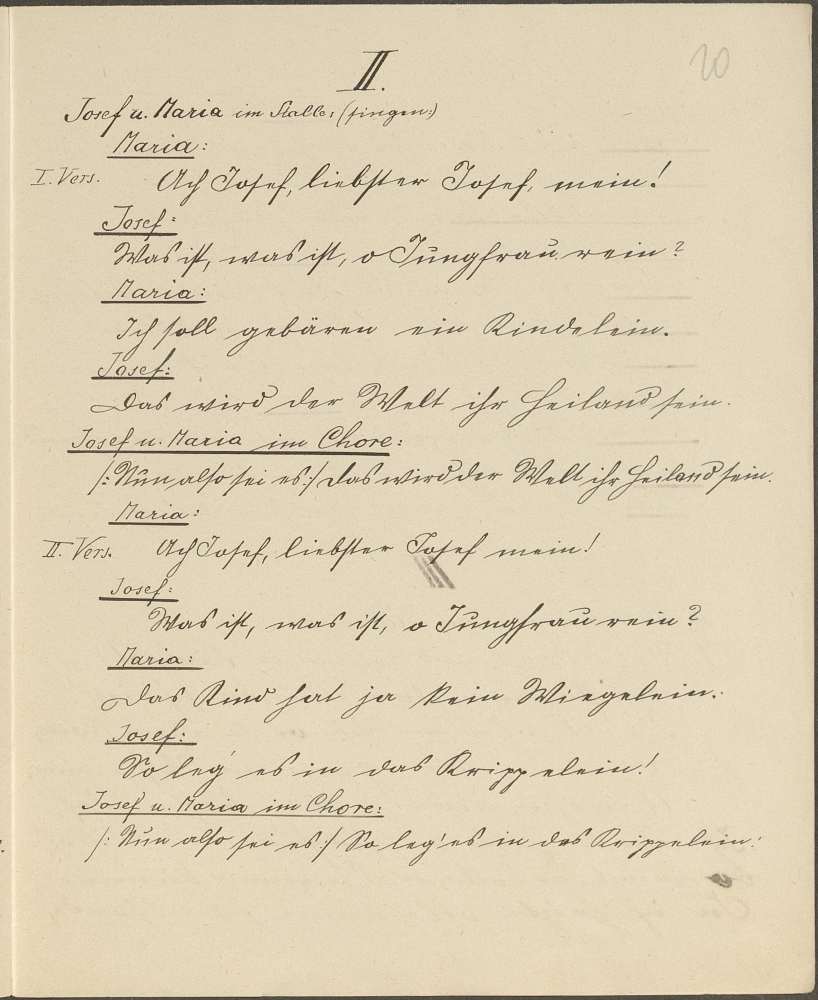 II.
20
Josef u. Maria im Stalle: (singen:)
Maria:
I. Vers. Ach Josef, liebster Josef, mein!
Josef:
Was ist, was ist, o Jungfrau rein?
Maria:
Ich soll gebären ein Kindelein.
Josef:
Das wird der Welt ihr Heiland sein.
Josef u. Maria im Chore:
/: Nun also sei es :/ Das wird der Welt ihr Heiland sein.
Maria:
II. Vers. Ach Josef, liebster Josef mein!
Josef:
Was ist, was ist, o Jungfrau rein?
Maria:
Das Kind hat ja kein Wiegelein.
Josef:
So leg' es in das Krippelein!
Josef u. Maria im Chore:
/: Nun also sei es :/ So leg' es in das Krippelein.